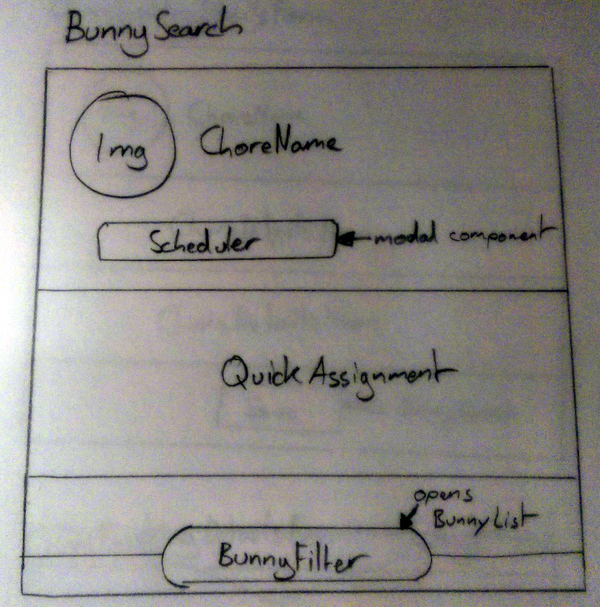 BunnySearch
Img
ChoreName
Scheduler
modal component
Quick Assignment
opens
BunnyList
BunnyFilter